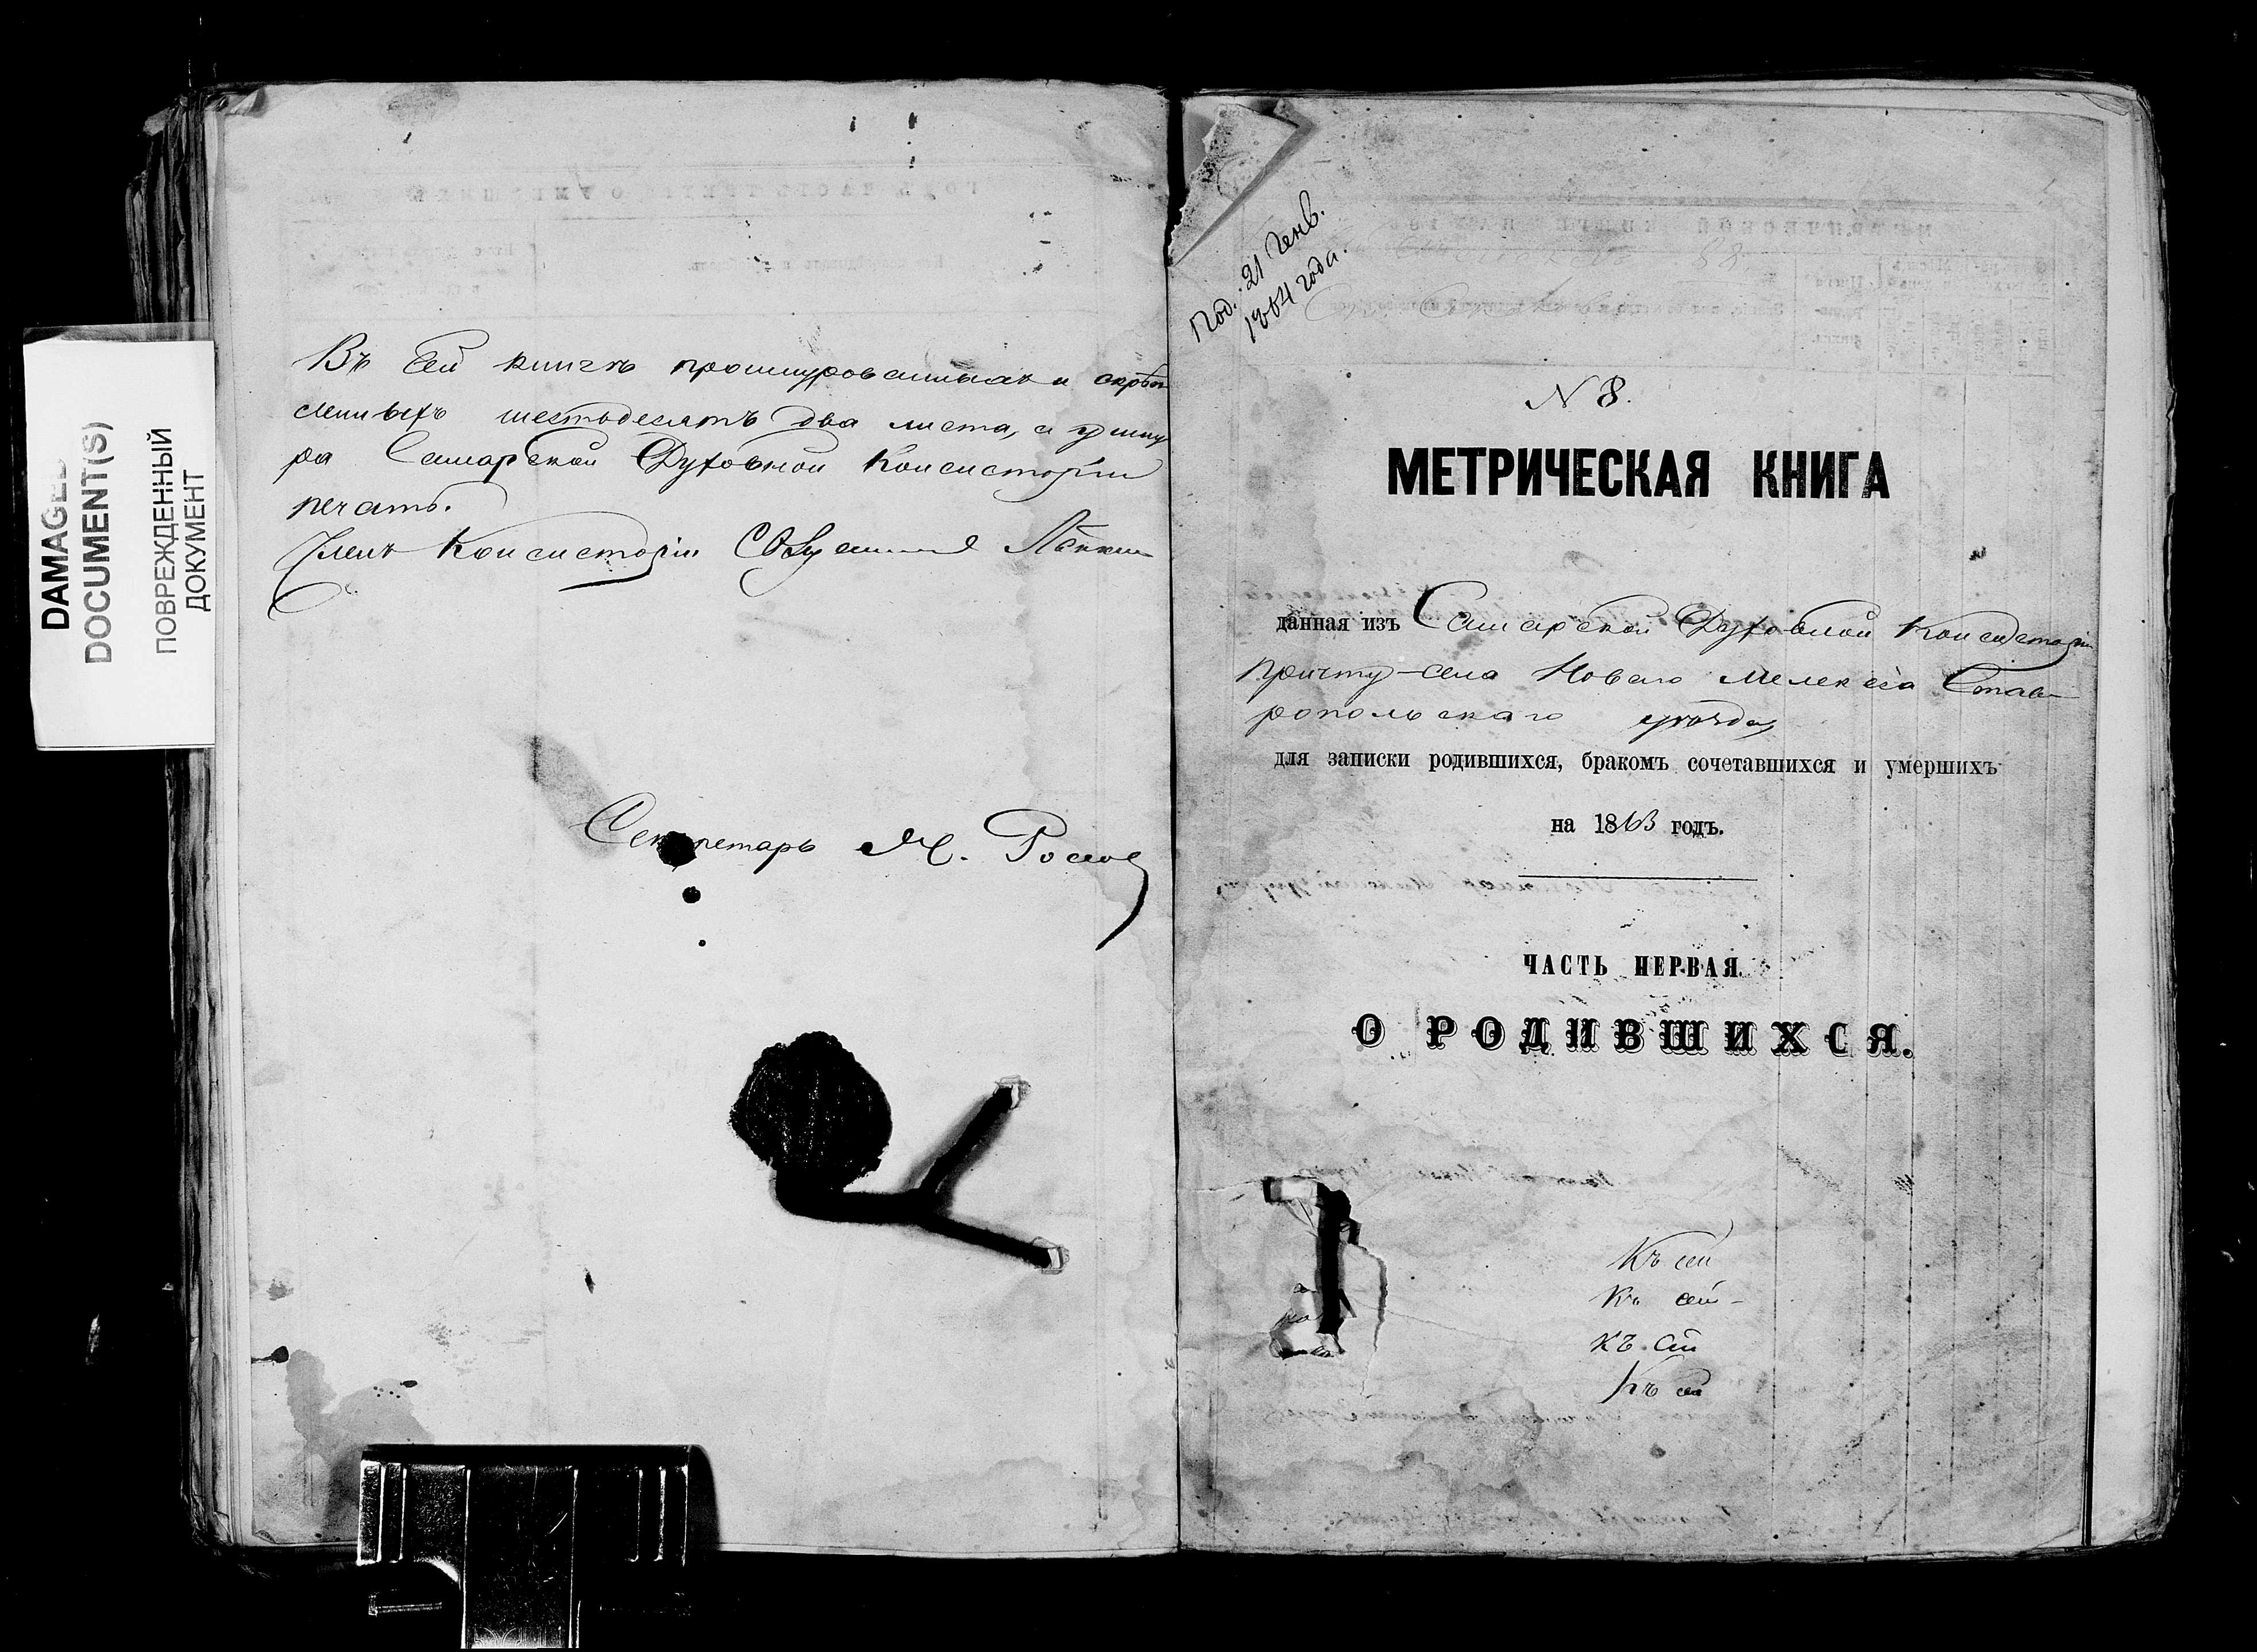 DAMAGED
DOCUMENT(S)
ПОВРЕЖДЕННЫЙ
ДОКУМЕНТ
Въ сей книгѣ прошнурованныхъ и скрѣп
ленныхъ шестьдесятъ два листа, а у шну
ра Самарской Духовной Консисторіи
печать.
Членъ Консисторіи
Секретарь М.
Под. 21 Генв.
1864 года.
N 8.
МЕТРИЧЕСКАЯ КНИГА
данная изъ Самарской Духовной Консисторіи
причту села Новаго Мелекеса Став
ропольскаго уѣзда
для записки родившихся, бракомъ сочетавшихся и умершихъ
на 1863 годъ.
ЧАСТЬ ПЕРВАЯ.
О РОДИВШИХСЯ.
Къ сей
Къ сей
къ сей
Къ сей